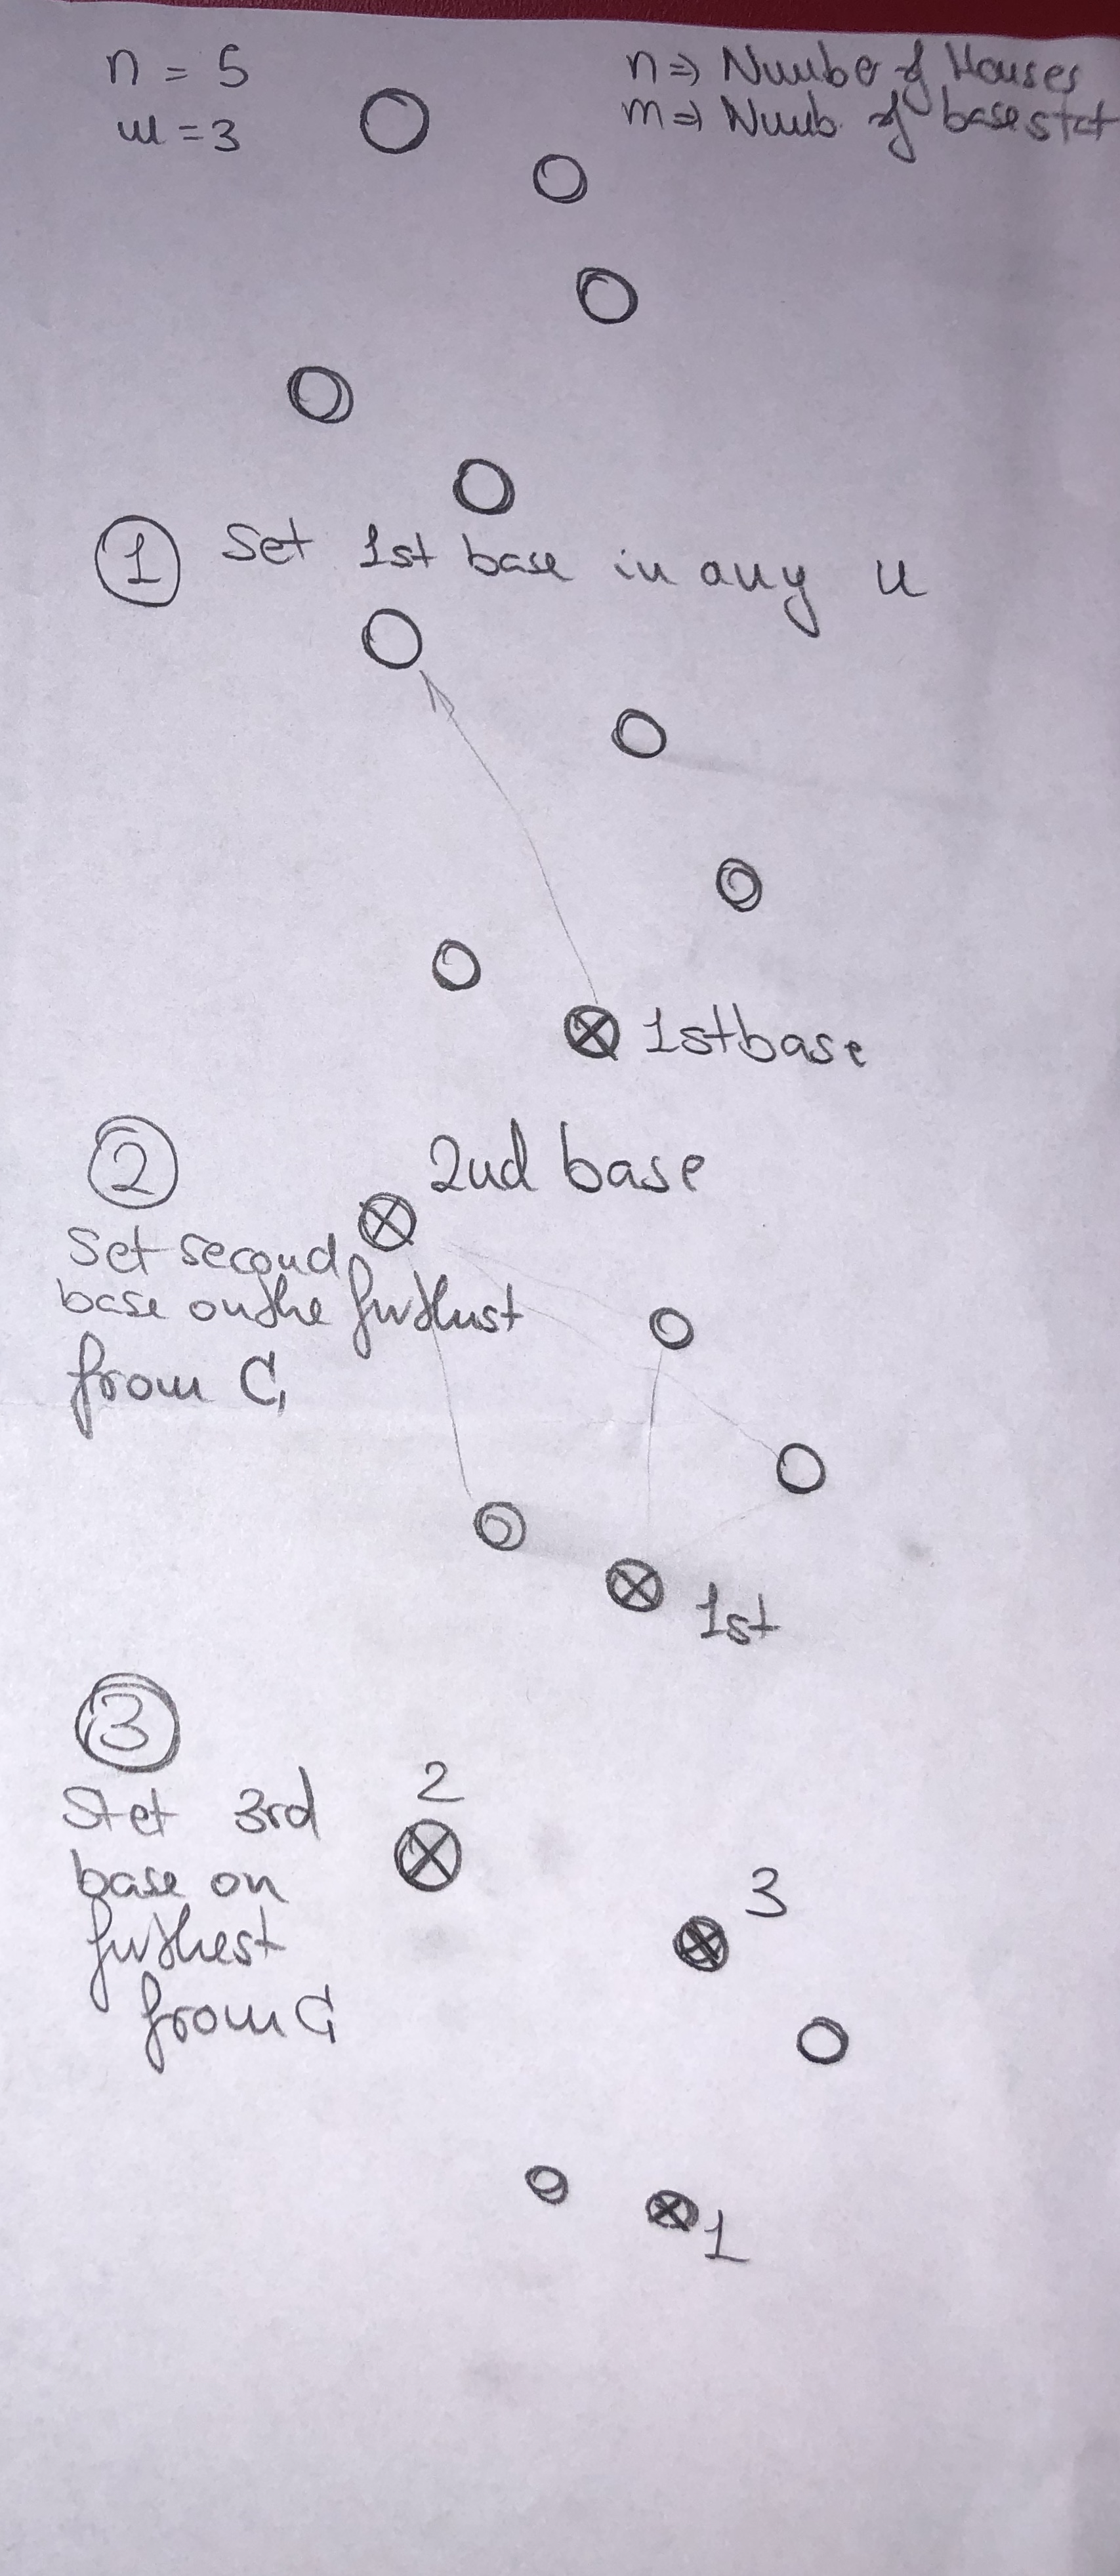 n = 5
m = 3
n => Number of Houses
m => Numb. of base stat
1 Set 1st base in any n
1st base
2
2nd base
Set second
base on the furthest
from C,
1st
3
Stet 3rd
base on
furthest
from C
2
3
1